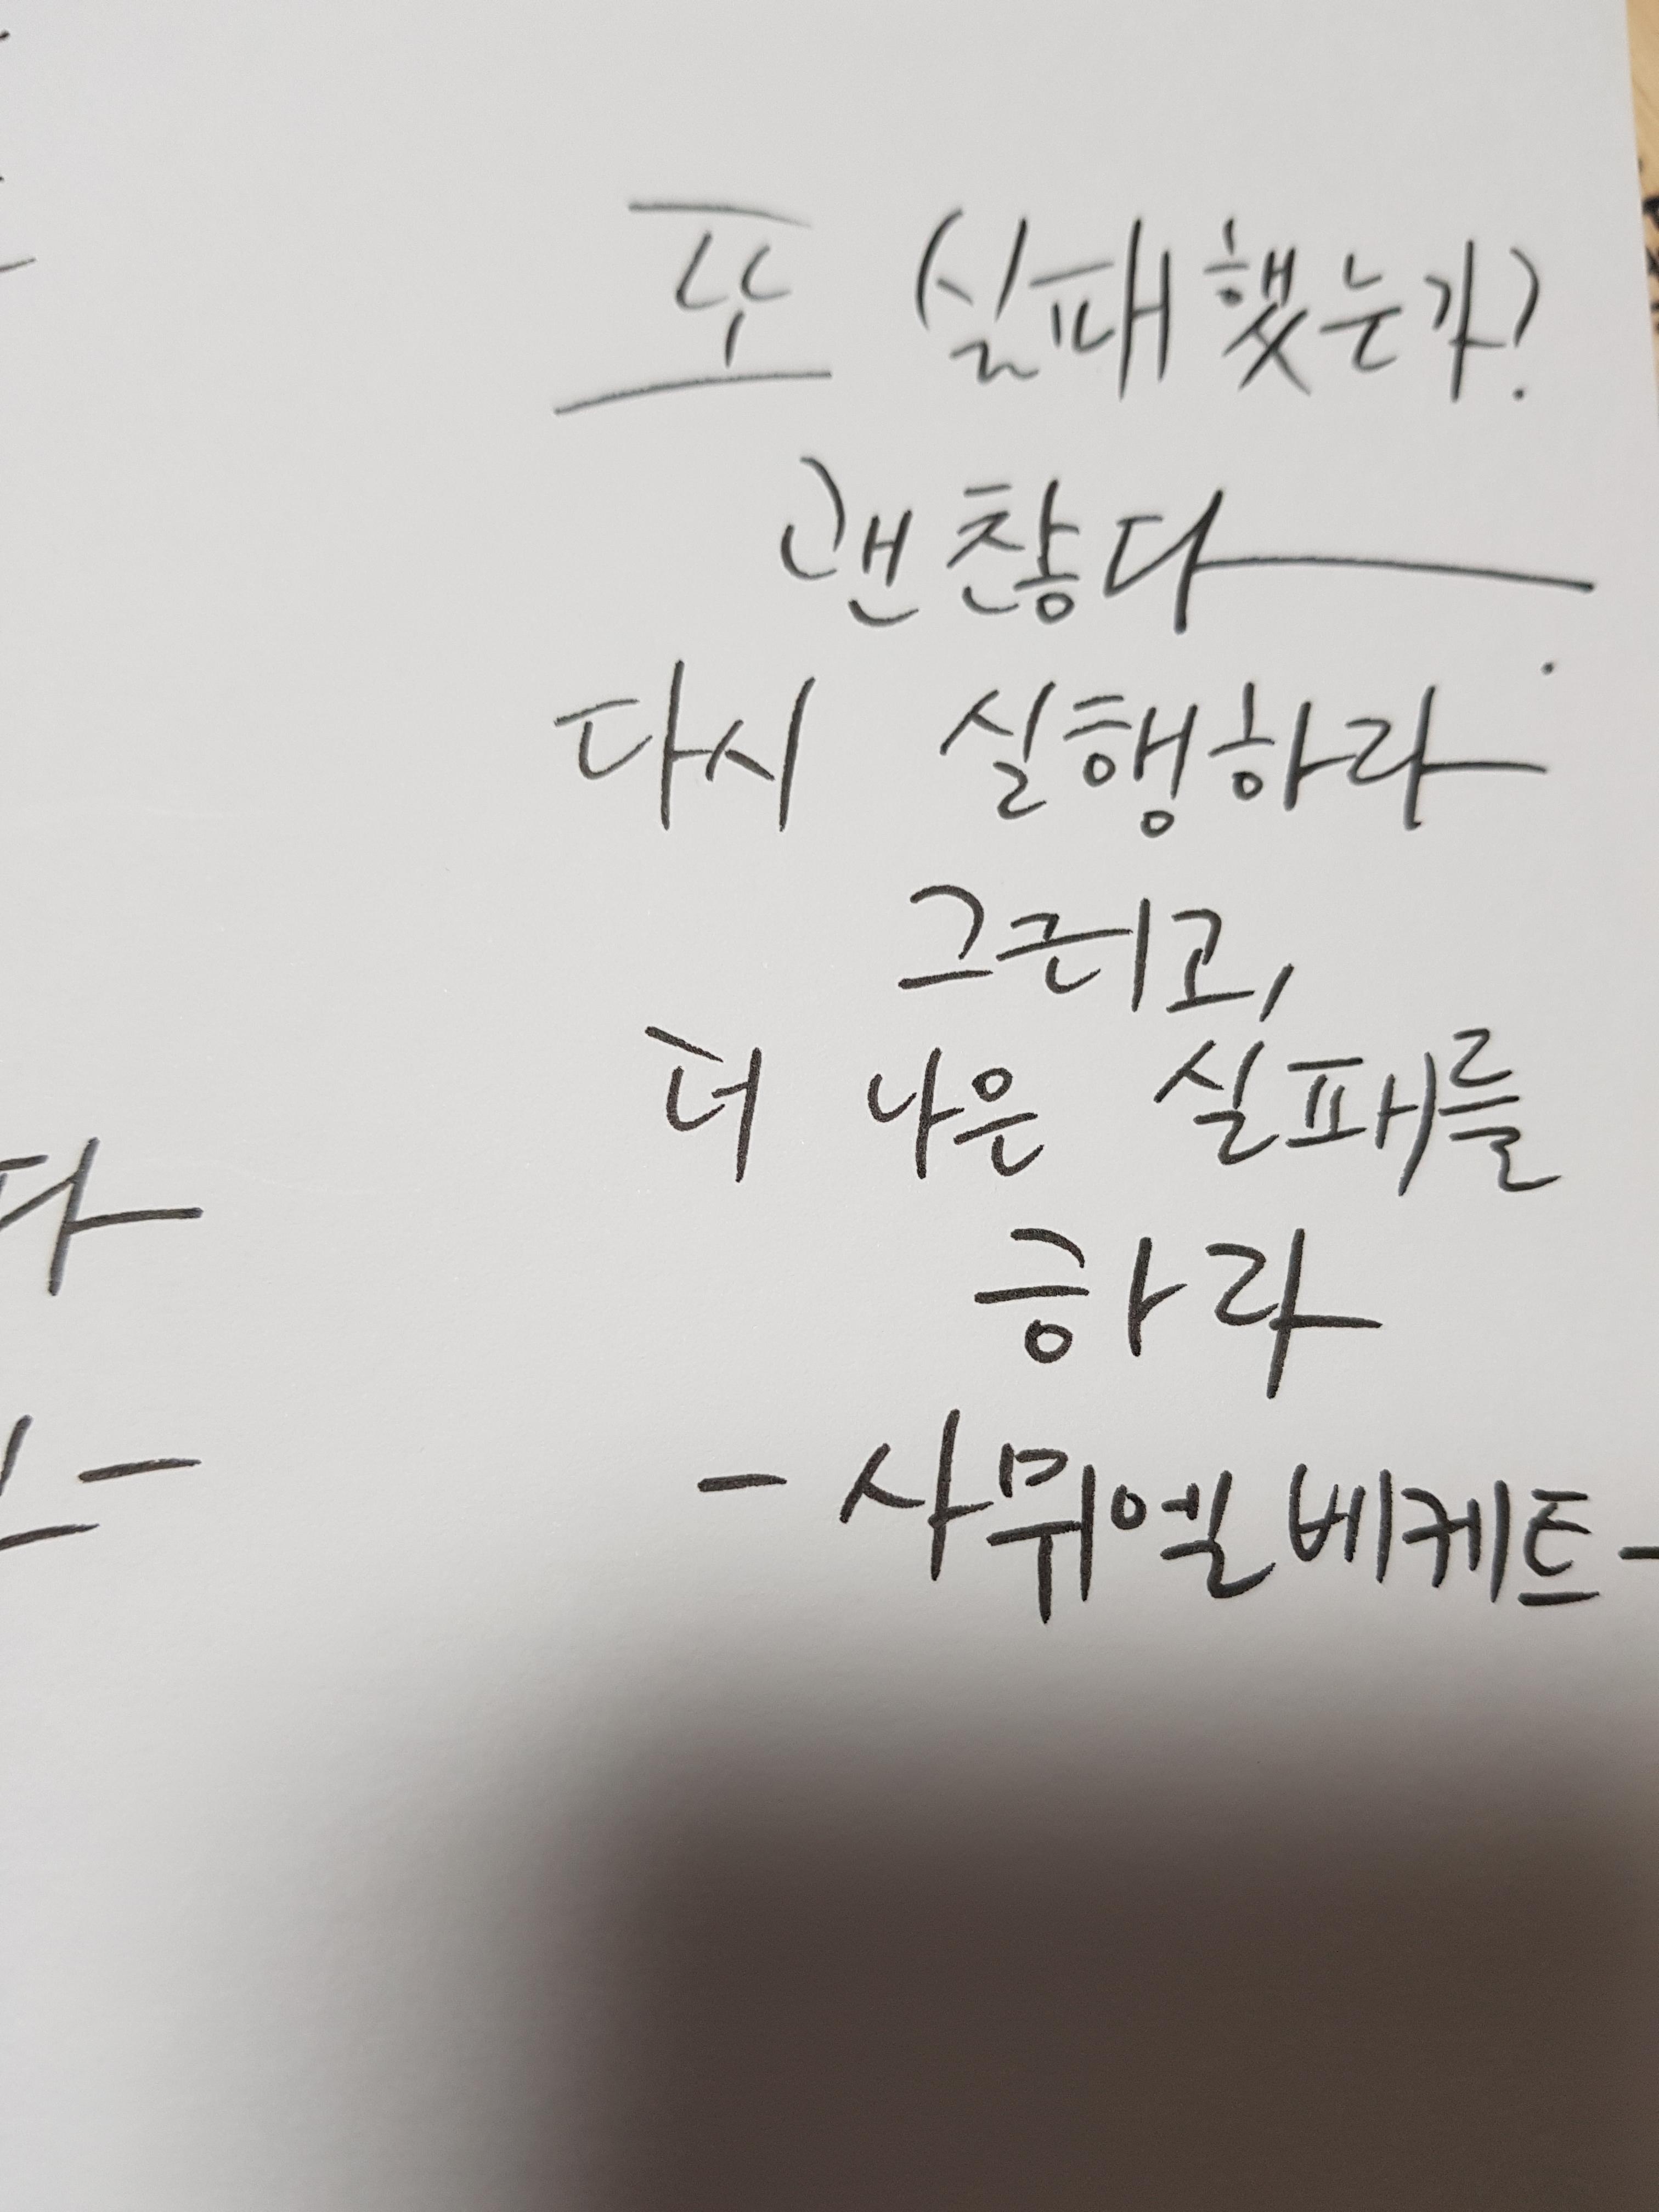 또 실패했는가?
괜찮다.
다시 실행하라
그리고,
더 나은 실패를
하라
- 사뮈엘 베케트 -
다